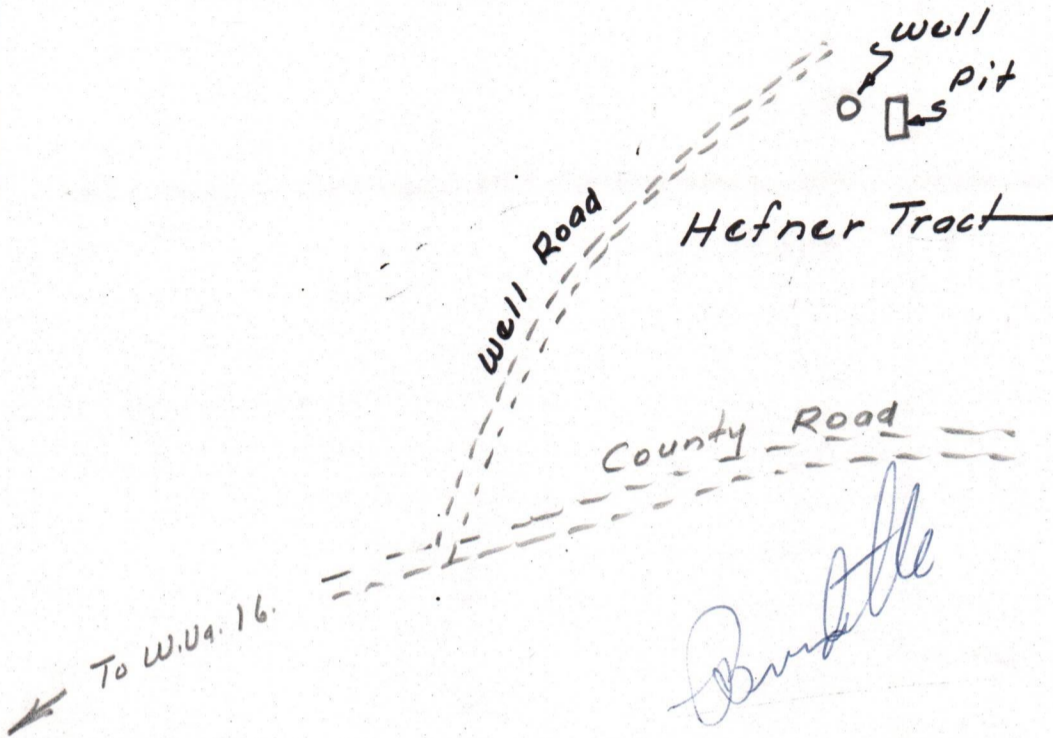 Well
Pit
Hefner Tract
Well Road
County Road
To W.Va. 16.